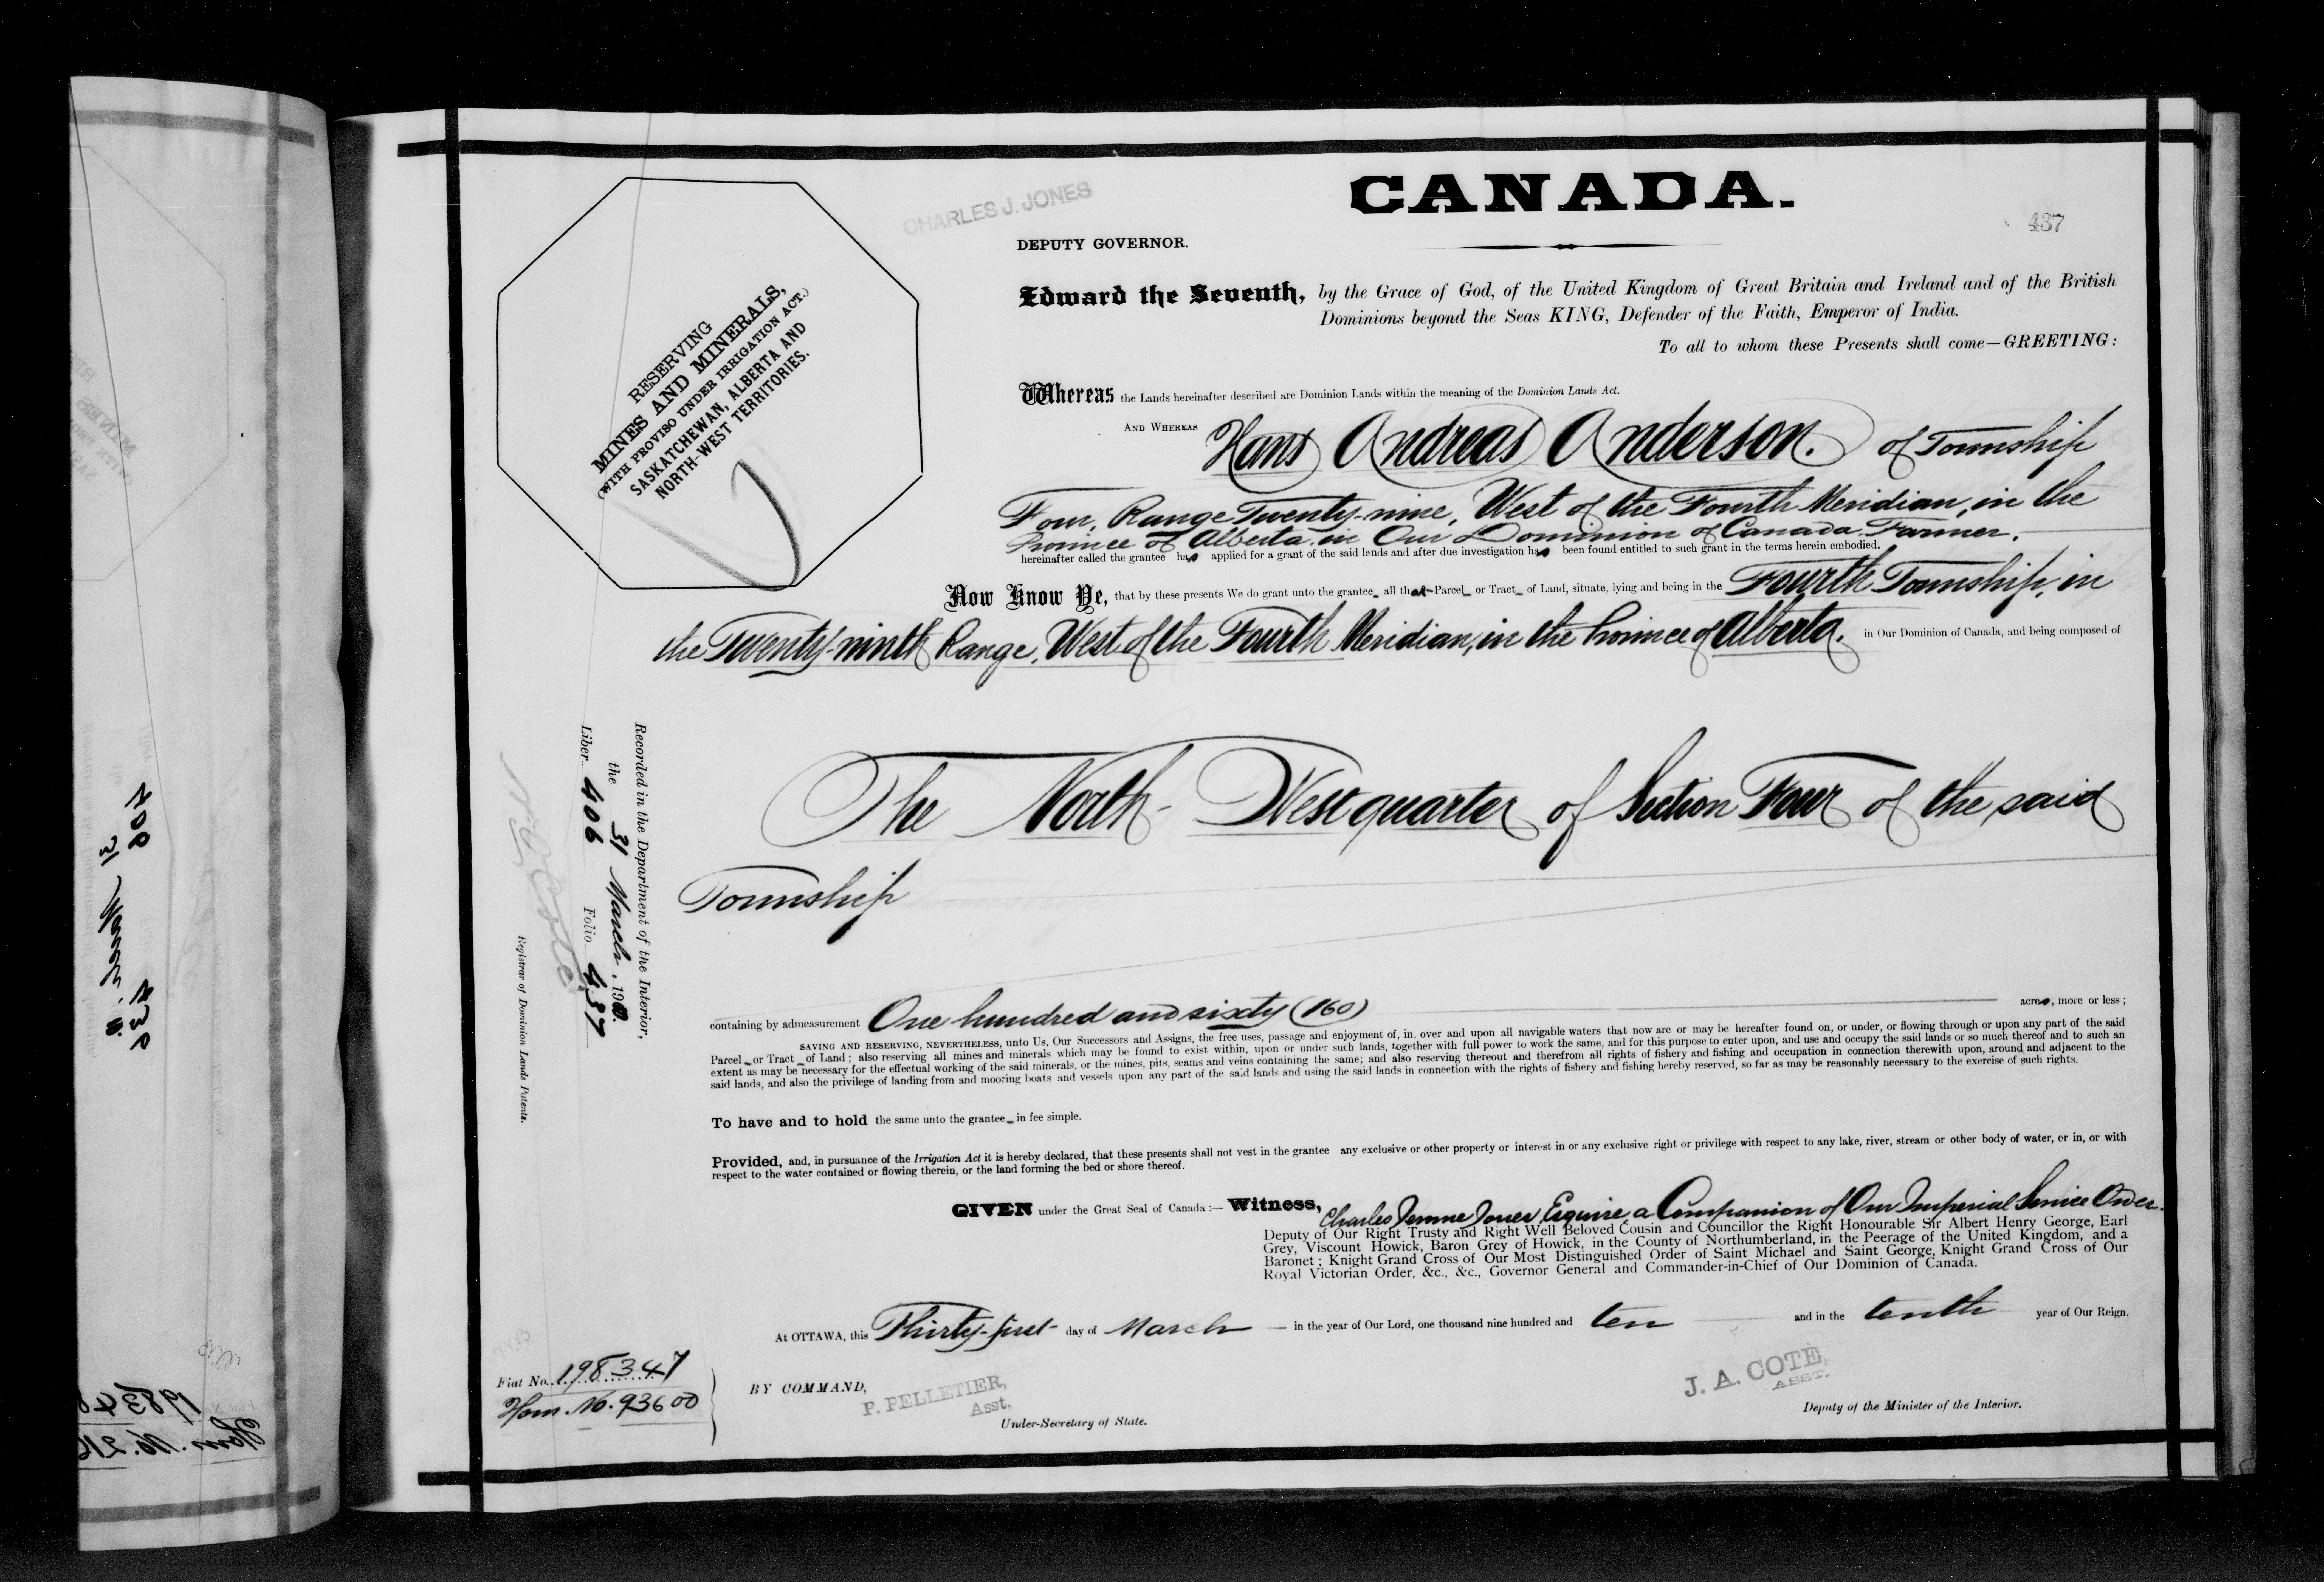 CANADA.
CHARLES J. JONES
437
DEPUTY GOVERNOR.
RESERVING
MINES AND MINERALS,
(WITH PROVISO UNDER IRRIGATION ACT.)
SASKATCHEWAN, ALBERTA AND
NORTH-WEST TERRITORIES.
Edward the Seventh, by the Grace of God, of the United Kingdom of Great Britain and Ireland and of the British
Dominions beyond the Seas KING, Defender of the Faith, Emperor of India.
To all to whom these Presents shall come—GREETING:
Whereas the Lands hereinafter described are Dominion Lands within the meaning of the Dominion Lands Act.
AND WHEREAS Hans Andreas Anderson. of Township
Four, Range Twenty-nine, West of the Fourth Meridian, in the
Province of Alberta in Our Dominion of Canada. Farmer.
hereinafter called the grantee has applied for a grant of the said lands and after due investigation has been found entitled to such grant in the terms herein embodied.
Now Know Ye, that by these presents We do grant unto the grantee all that Parcel or Tract of Land, situate, lying and being in the Fourth Township, in
the Twenty-ninth Range, West of the Fourth Meridian, in the Province of Alberta. in Our Dominion of Canada, and being composed of
The North-West quarter of Section Four of the said
Township
containing by admeasurement One hundred and sixty (160) acres, more or less;
SAVING AND RESERVING, NEVERTHELESS, unto Us, Our Successors and Assigns, the free uses, passage and enjoyment of, in, over and upon all navigable waters that now are or may be hereafter found on, or under, or flowing through or upon any part of the said
Parcel or Tract of Land; also reserving all mines and minerals which may be found to exist within, upon or under such lands, together with full power to work the same, and for this purpose to enter upon, and use and occupy the said lands or so much thereof and to such an
extent as may be necessary for the effectual working of the said minerals, or the mines, pits, seams and veins containing the same; and also reserving thereout and therefrom all rights of fishery and fishing and occupation in connection therewith upon, around and adjacent to the
said lands, and also the privilege of landing from and mooring boats and vessels upon any part of the said lands and using the said lands in connection with the rights of fishery and fishing hereby reserved, so far as may be reasonably necessary to the exercise of such rights.
To have and to hold the same unto the grantee in fee simple.
Provided, and, in pursuance of the Irrigation Act it is hereby declared, that these presents shall not vest in the grantee any exclusive or other property or interest in or any exclusive right or privilege with respect to any lake, river, stream or other body of water, or in, or with
respect to the water contained or flowing therein, or the land forming the bed or shore thereof.
GIVEN under the Great Seal of Canada:— Witness, Charles Jones, Esquire, a Companion of Our Imperial Service Order
Deputy of Our Right Trusty and Right Well Beloved Cousin and Councillor the Right Honourable Sir Albert Henry George, Earl
Grey, Viscount Howick, Baron Grey of Howick, in the County of Northumberland, in the Peerage of the United Kingdom, and a
Baronet; Knight Grand Cross of Our Most Distinguished Order of Saint Michael and Saint George, Knight Grand Cross of Our
Royal Victorian Order, &c., &c., Governor General and Commander-in-Chief of Our Dominion of Canada.
At OTTAWA, this Thirty-first day of March in the year of Our Lord, one thousand nine hundred and ten and in the tenth year of Our Reign.
BY COMMAND,
P. PELLETIER,
Asst.
Under-Secretary of State.
J. A. COTE,
ASST.
Deputy of the Minister of the Interior.
Fiat No. 198347
Hom. No. 93600
Recorded in the Department of the Interior,
the 31 March, 1910.
Liber 406 Folio 437
Registrar of Dominion Lands Patents.